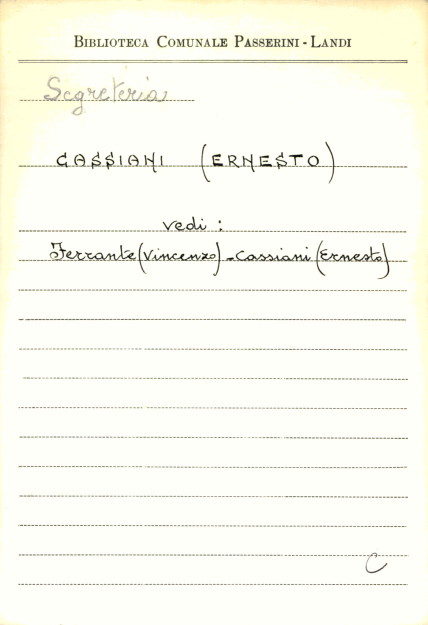 BIBLIOTECA COMUNALE PASSERINI - LANDI
Segreteria
CASSIANI (ERNESTO)
vedi :
Ferrante (Vincenzo) - Cassiani (Ernesto)
C